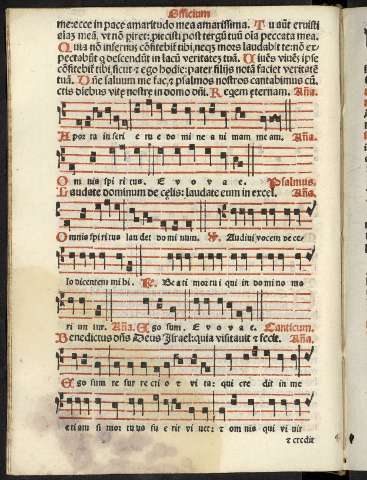 Officium
me: ecce in pace amaritudo mea amarissima. Tu aūt eruisti
aīaz meā, vt nō piret: piecisti post tergū tuū oīa peccata mea.
Quia nō infernus cōfitebit̄ tibi, neqz mors laudabit te: nō ex-
pectabūt q̄ descendūt in lacū veritatez tuā. Viuēs viuēs ipse
cōfitebit̄ tibi, sicut ⁊ ego hodie: pater filijs notā faciet veritatē
tuā. Dn̄e saluum me fac, ⁊ psalmos nostros cantabimus cū-
ctis diebus vite nostre in domo dn̄i. Regem eternam. Aña.
A por ta in feri e ru e do mi ne a ni mam me am. Aña.
Om nis spi ri tus. Evovae. Psalmus.
Laudate dominum de celis: laudate eum in excel. Aña.
Omnis spi ri tus lau det do mi num. ℣. Audiui vocem de ce-
lo dicentem mi bi. ℟. Be ati mor tu i qui in do mi no mo
ri un tur. Aña. Ego sum. Evovae. Canticum.
Benedictus dn̄s Deus Israel: quia visitauit ⁊ fecit. Aña.
Ego sum re sur re cti o ⁊ vi ta: qui cre dit in me
etiam si mor tu us fu e rit vi uet: ⁊ om nis qui vi uit
⁊ credit